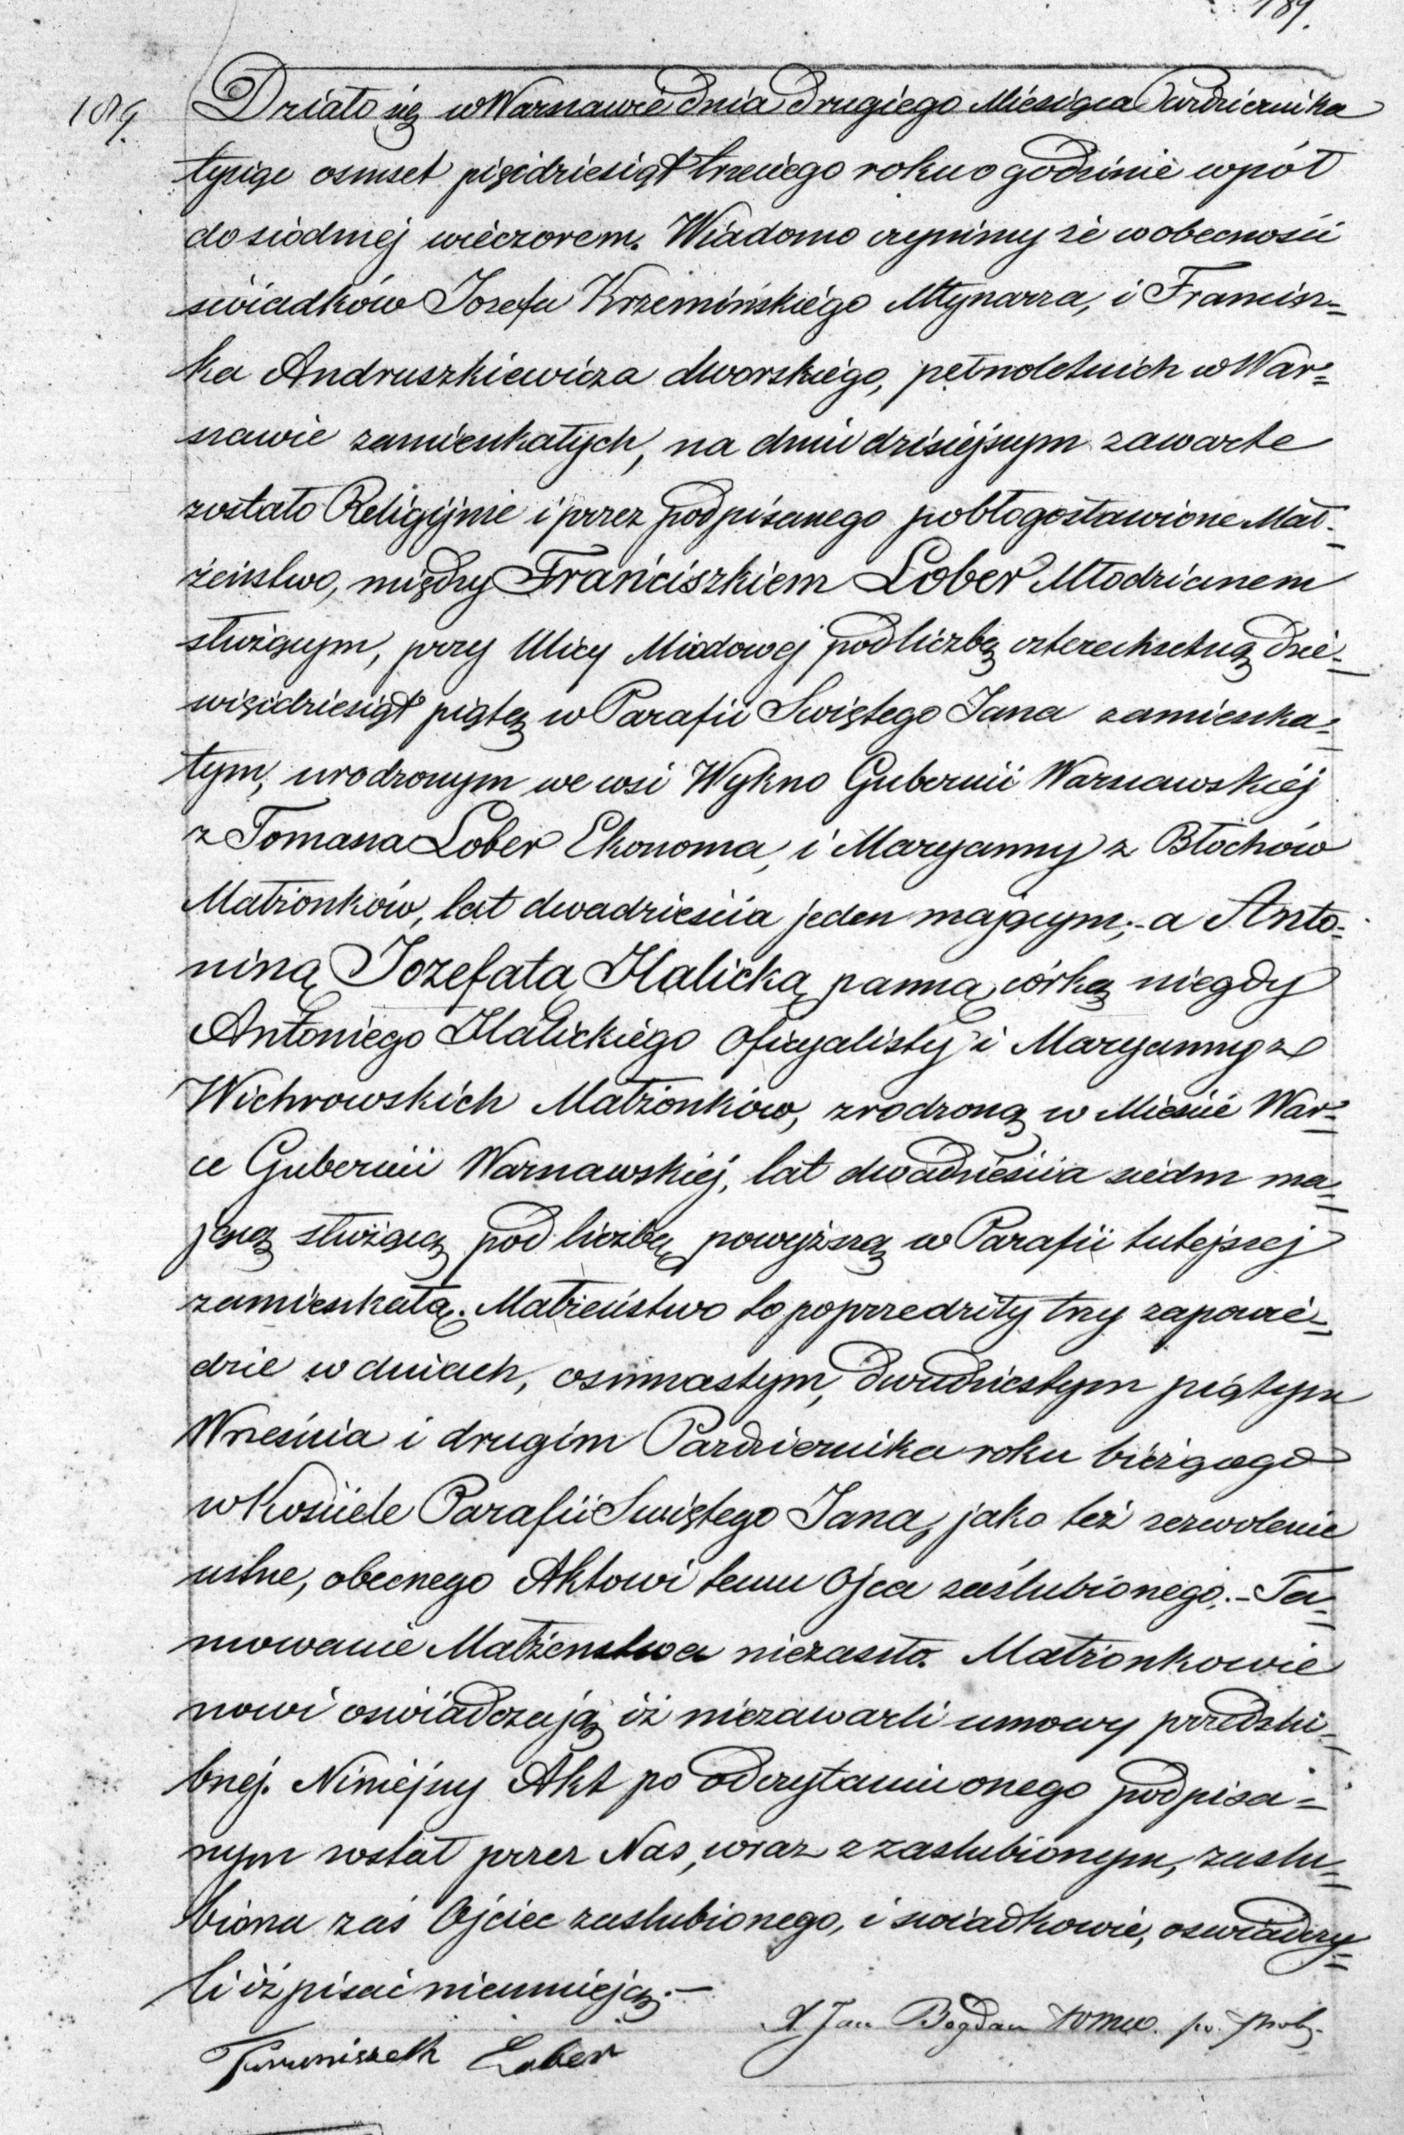 189.
189. Działo się w Warszawie dnia drugiego Miesiąca Października
tysiąc osmset pięćdziesiąt trzeciego roku o godzinie wpół
do siodmej wieczorem. Wiadomo czynimy że w obecności
świadków Jozefa Krzemińskiego Młynarza, i Francisz=
ka Andruszkiewicza dworskiego, pełnoletnich w War=
szawie zamieszkałych, na dniu dzisiejszym zawarte
zostało Religijnie i przez podpisanego pobłogosławione Mał=
żeństwo, między Franciszkiem Lober Młodzianem
służącym, przy Ulicy Miodowej pod liczbą czterechsetną dzie=
więćdziesiąt piątą w Parafii Swiętego Jana zamieszka=
łym, urodzonym we wsi Wykno Gubernii Warszawskiéj
z Tomasza Lober Ekonoma, i Maryanny z Błochów
Małżonków, lat dwadzieścia jeden mającym; - a Anto=
niną Jozefatą Halicką panną, córką niegdy
Antoniego Halickiego Oficyalisty i Maryanny z
Wichrowskich Małżonków, zrodzoną w Mieście War=
ce Gubernii Warszawskiéj, lat dwadzieścia siedm ma=
jącą służącą pod liczbą powyższą w Parafii tutejszej
zamieszkałą. Małżeństwo to poprzedziły trzy zapowie=
dzie w dniach, osmnastym, dwudziestym piątym
Września i drugim Października roku bieżącego
w Kościele Parafii Swiętego Jana, jako też zezwolenie
ustne, obecnego Aktowi temu Ojca zaślubionego. - Ta=
mowanie Małżenstwa niezaszło. Małżonkowie
nowi oswiadczają iż niezawarli umowy przedślu=
bnej. Niniejszy Akt po odczytaniu onego podpisa=
nym został przez Nas, wraz z zaslubionym, zaslu=
biona zaś Ojciec zaslubionego, i swiadkowie, oswiadczy=
li iż pisać nieumieją. -
X Jan Bogdan
Franciszek Lober